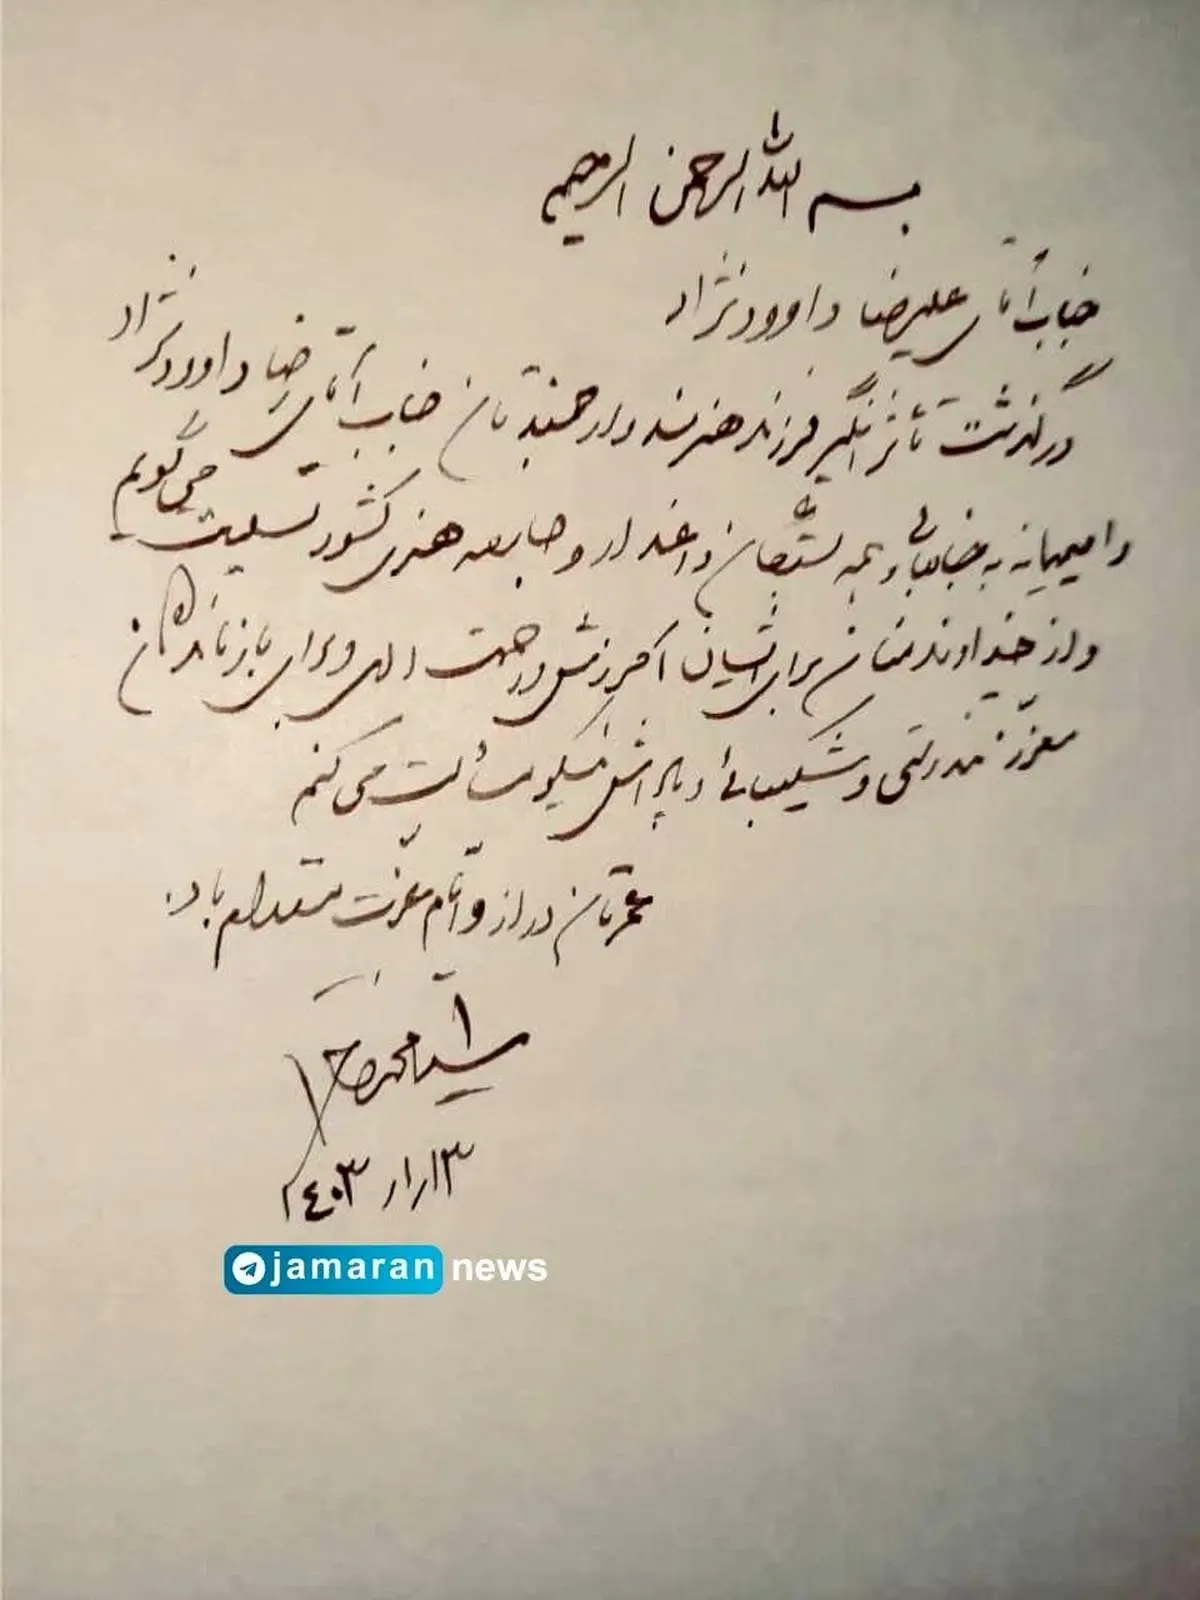 بسم الله الرحمن الرحیم
جناب آقای علیرضا داوودنژاد
درگذشت تأثرانگیز فرزند هنرمند و ارجمندتان جناب آقای رضا داوودنژاد
را صمیمانه به جنابعالی و همه بستگان داغدار و جامعه هنری کشور تسلیت می‌گویم
و از خداوند منان برای ایشان آمرزش و رحمت الهی و برای بازماندگان
معزز تندرستی و شکیبائی و پاداش نیکو مسألت می‌کنم
عمرتان دراز و ایام عزت مستدام باد.
سید محمد خاتمی
۱۳/۱/۱۴۰۳
jamaran news